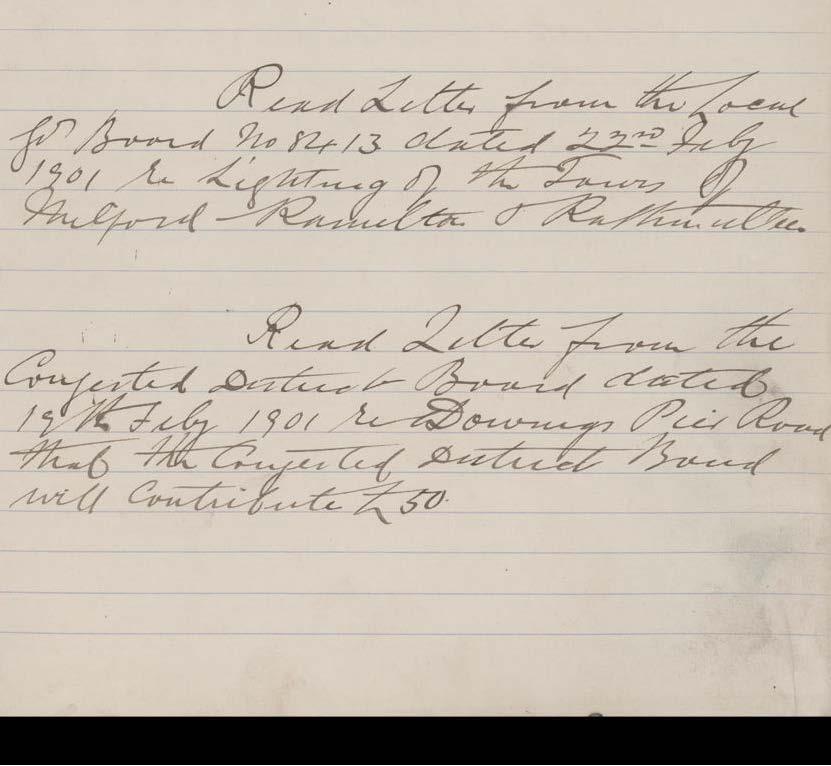 Read Letter from the Local
Govt Board No 8413 dated 22nd Feby
1901 re Lighting of the Towns of
Milford - Ramelton & Rathmullen
Read Letter from the
Congested District Board dated
19th Feby 1901 re Downings Pier Road
that the Congested District Board
will Contribute £50.